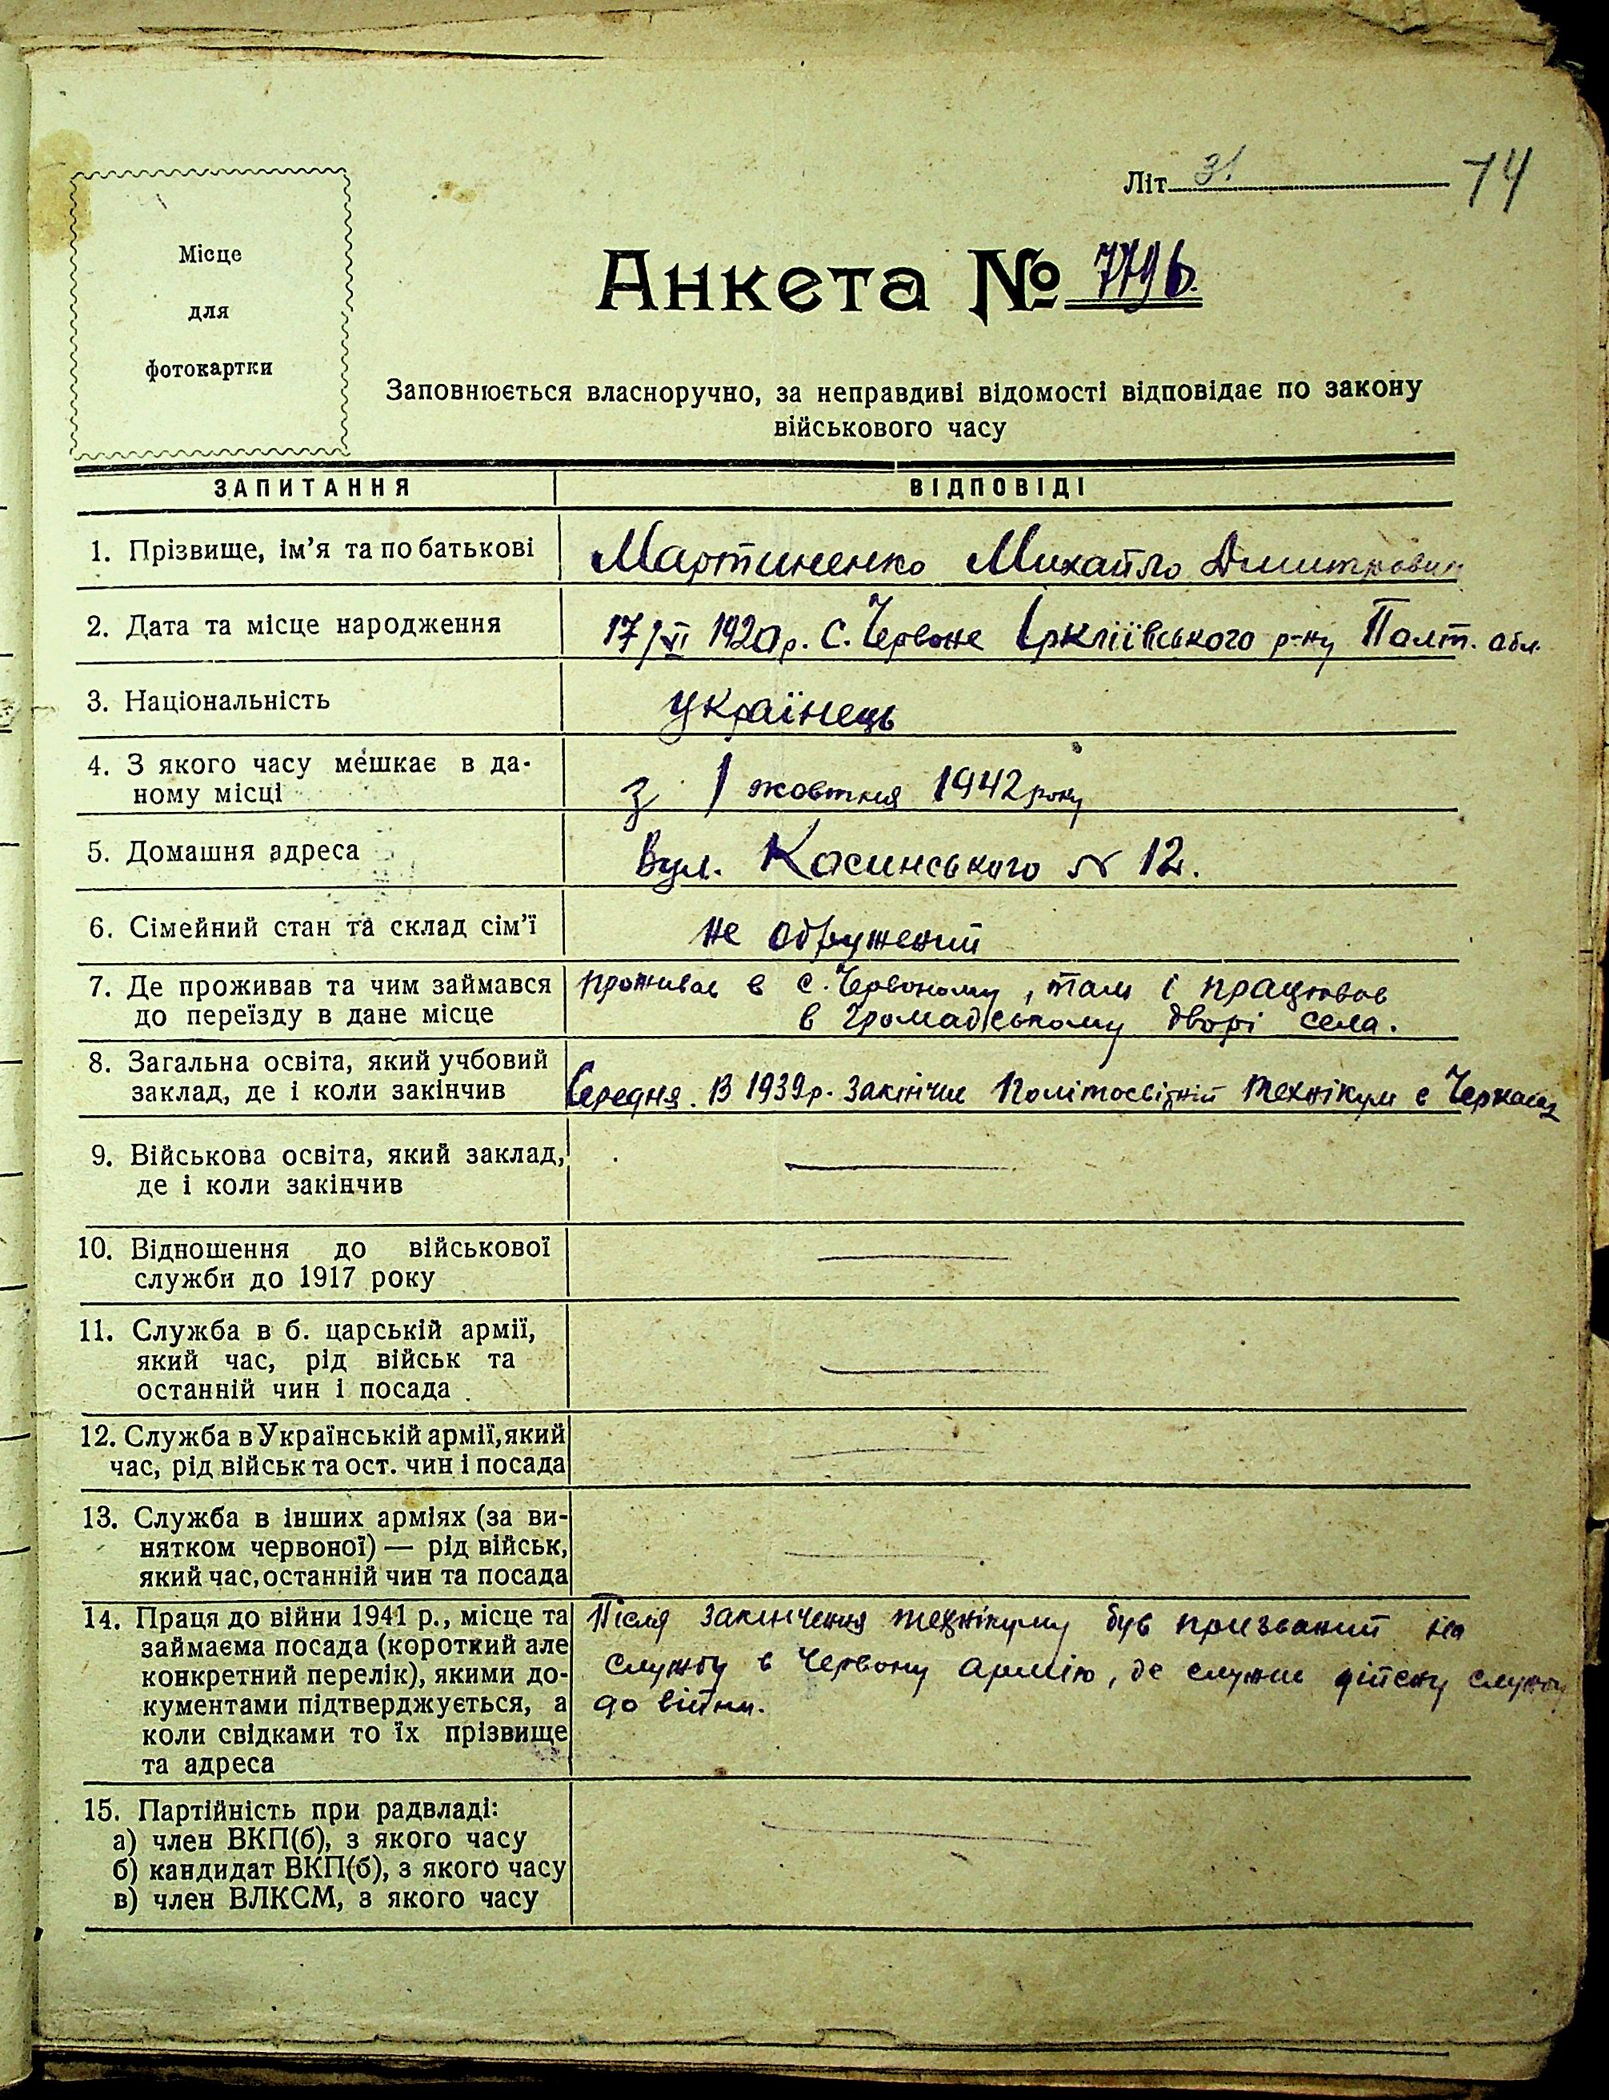 Літ 31
74
Місце
для
фотокартки
Анкета № 7796.
Заповнюється власноручно, за неправдиві відомості відповідає по закону
військового часу
ЗАПИТАННЯ ВІДПОВІДІ
1. Прізвище, ім'я та по батькові Мартиненко Михайло Дмитрович
2. Дата та місце народження 17/VI 1920 р. С. Червоне Іркліївського р-ну Полт. обл.
3. Національність українець
4. З якого часу мешкає в да-
ному місці з 1 жовтня 1942 року
5. Домашня адреса Вул. Косинського № 12.
6. Сімейний стан та склад сім'ї не одружений
7. Де проживав та чим займався проживав в с. Червоному, там і працював
до переїзду в дане місце в Громадському дворі села.
8. Загальна освіта, який учбовий
заклад, де і коли закінчив Середня. В 1939 р. закінчив Політосвітній технікум в Черкасах
9. Військова освіта, який заклад,
де і коли закінчив
10. Відношення до військової
служби до 1917 року
11. Служба в б. царській армії,
який час, рід військ та
останній чин і посада
12. Служба в Українській армії, який
час, рід військ та ост. чин і посада
13. Служба в інших арміях (за ви-
нятком червоної) — рід військ,
який час, останній чин та посада
14. Праця до війни 1941 р., місце та Після закінчення технікуму був призваний на
займаєма посада (короткий але
конкретний перелік), якими до- службу в Червону армію, де служив дійсну службу
кументами підтверджується, а до війни.
коли свідками то їх прізвище
та адреса
15. Партійність при радвладі:
а) член ВКП(б), з якого часу
б) кандидат ВКП(б), з якого часу
в) член ВЛКСМ, з якого часу